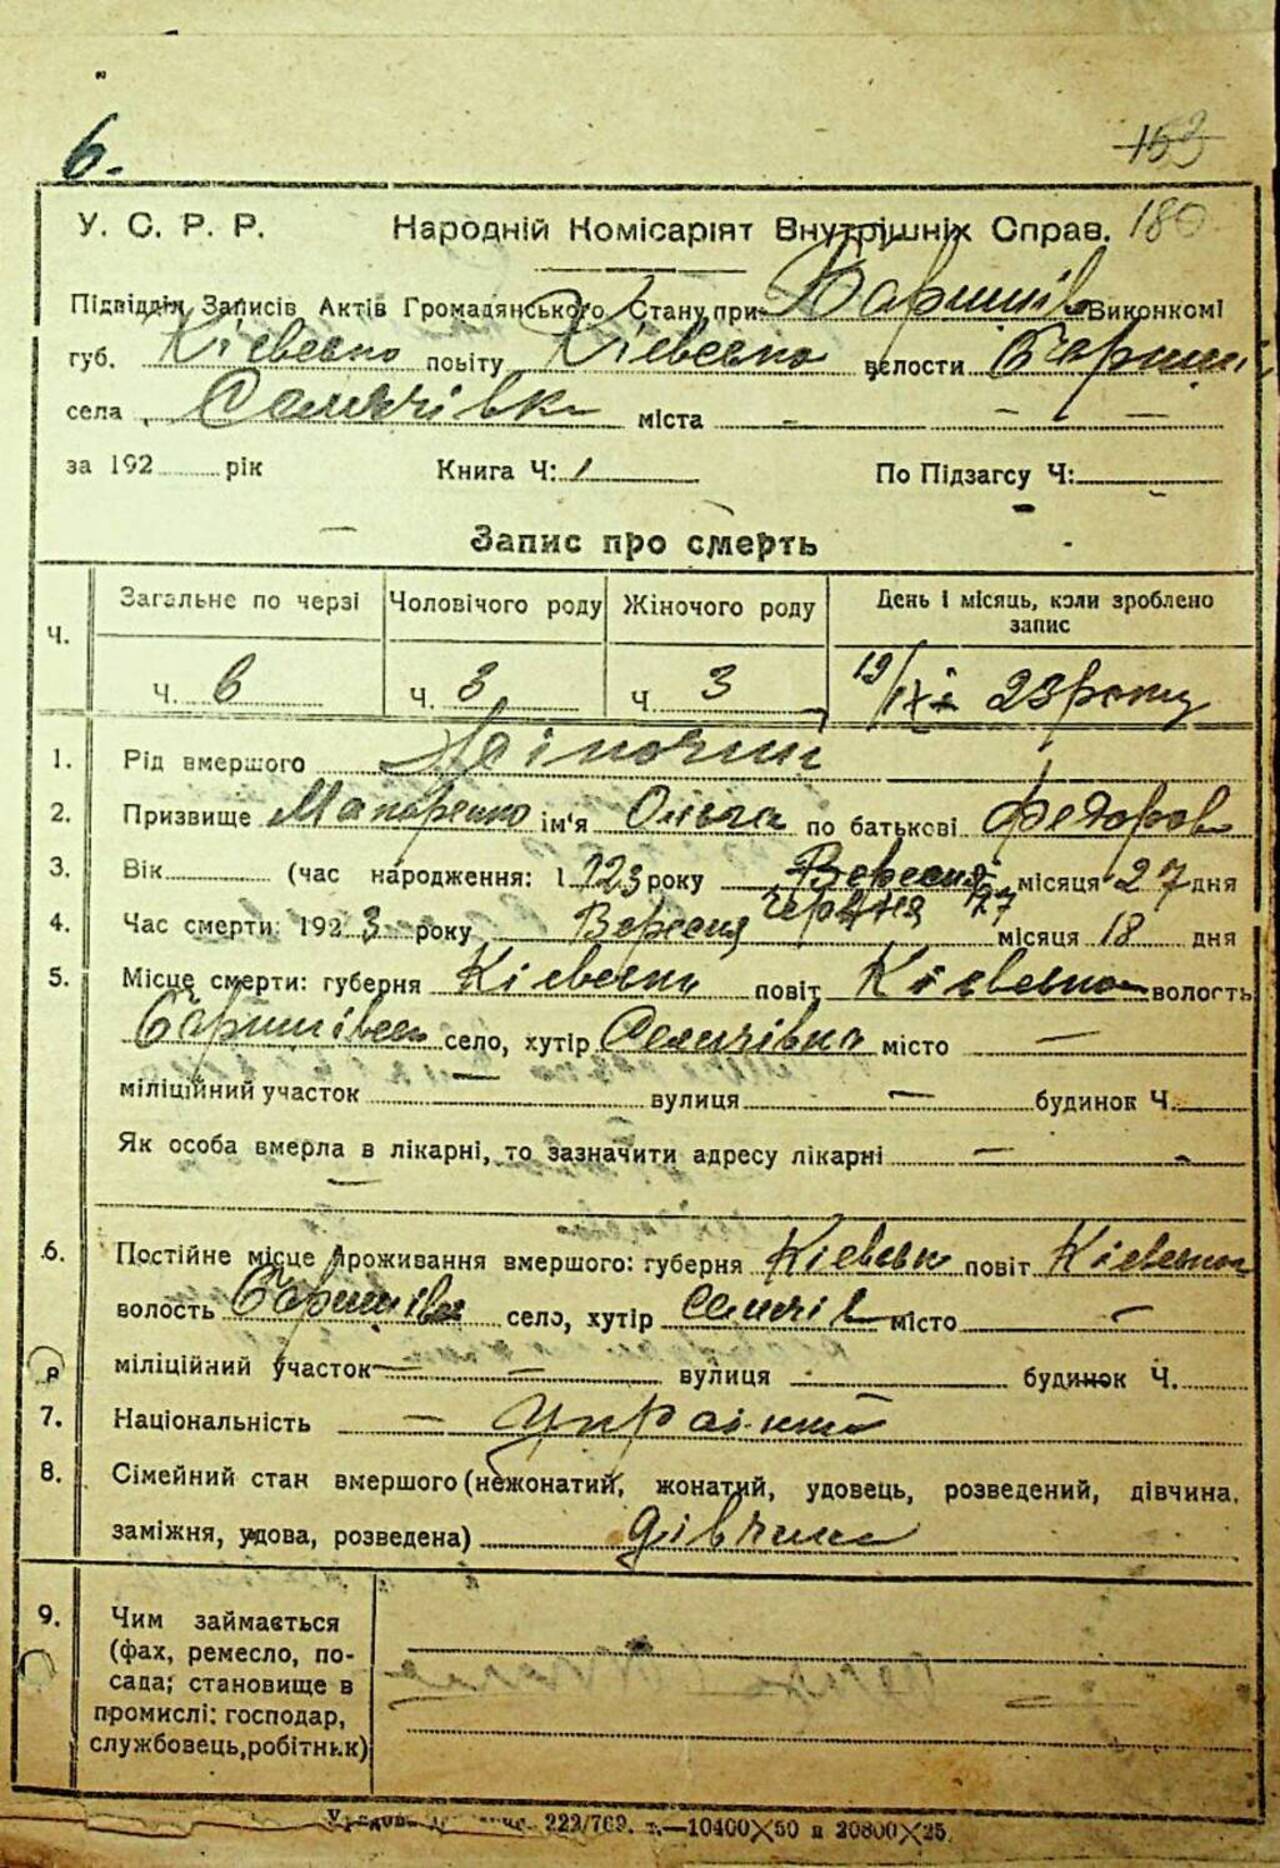 6.
153
У. С. Р. Р. Народній Комісаріят Внутрішніх Справ. 180
Підвідділ Записів Актів Громадянського Стану при Баришів Виконкомі
губ. Київсько повіту Київсько волости Бариші
села Селичівк міста — — —
за 192 рік Книга Ч: 1 По Підзагсу Ч:
Запис про смерть
Ч. Загальне по черзі Чоловічого роду Жіночого роду День і місяць, коли зроблено запис
Ч. 6 Ч. 3 Ч. 3 19/IX 23 року
1. Рід вмершого Жіночий
2. Призвище ім'я Ольга по батькові Федоров
3. Вік (час народження: 1923 року Вересня місяця 27 дня
Червня 27
4. Час смерти: 1923 року Вересня місяця 18 дня
5. Місце смерти: губерня Кіевсько повіт Кіевсько волость
Баришівсь село, хутір Селичівка місто —
міліційний участок — вулиця — будинок Ч.
Як особа вмерла в лікарні, то зазначити адресу лікарні —
6. Постійне місце проживання вмершого: губерня Кіевськ повіт Кіевсько
волость Баришівсь село, хутір Селичів місто —
міліційний участок — — вулиця будинок Ч.
7. Національність — Україн
8. Сімейний стан вмершого (нежонатий, жонатий, удовець, розведений, дівчина,
заміжня, удова, розведена) дівчина
9. Чим займається
(фах, ремесло, по-
сада; становище в
промислі: господар,
службовець, робітник)
222/769. т.—10400×50 и 20800×25.